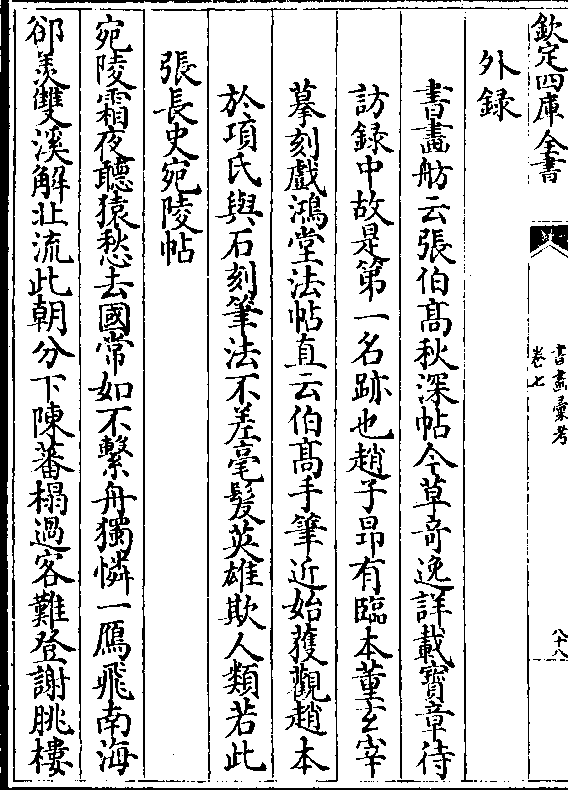 欽定四庫全書
書畫彙考
卷七
八十八
外録
書畫舫云張伯髙秋深帖今草竒逸詳載寳章待
訪録中故是第一名跡也趙子昂有臨本董𤣥宰
摹刻戲鴻堂法帖直云伯髙手筆近始獲觀趙本
於項氏與石刻筆法不差毫髮英雄欺人類若此
張長史宛陵帖
宛陵霜夜聽猿愁去國常如不繫舟獨憐一鴈飛南海
郤羡雙溪解北流此朝分下陳蕃榻過客難登謝朓樓